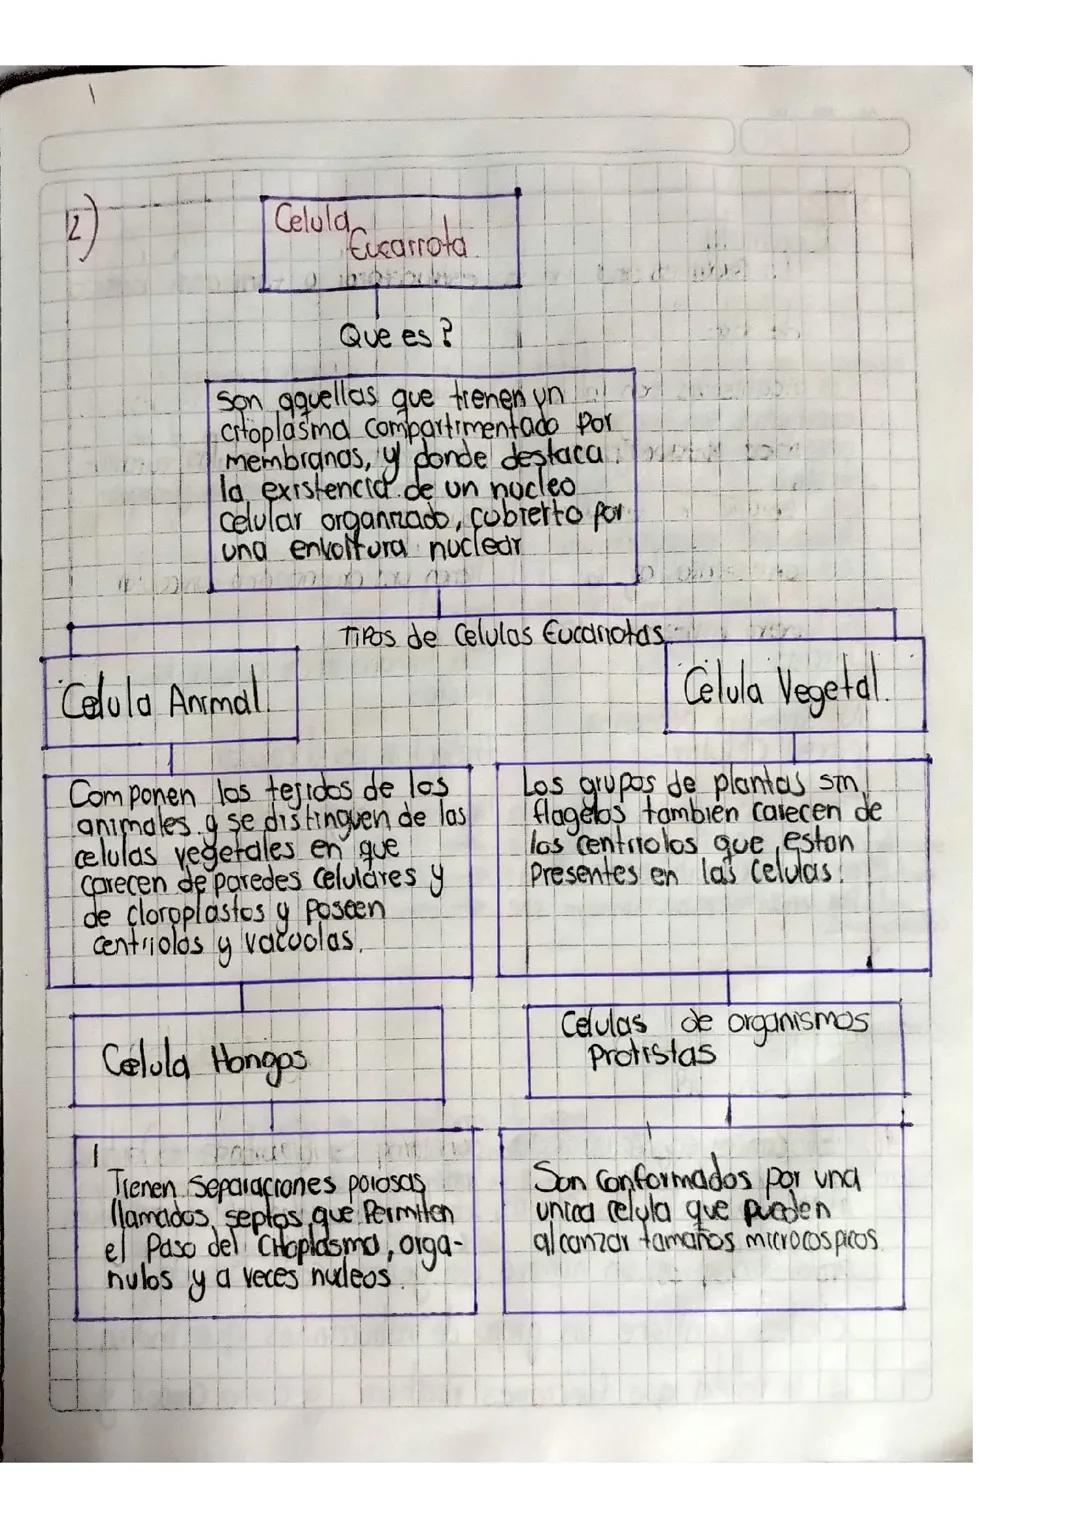 2)
Celula
Eucarrota
Que es?
Son aquellas que tienen un
citoplasma compartimentado Por
membranas, y donde destaca
la existencia de un nucleo
celular organizado, cubierto por
una envoltura nuclear
Tipos de Celulas Eucariotas
Celula Animal.
Célula Vegetal.
Componen los tejidos de los
animales y se distinguen de las
celulas vegetales en que
carecen de paredes celulares y
de cloroplastos y Poseen
centriolos y vacuolas.
Los grupos de plantas sin
flagelos tambien carecen de
los centriolos que estan
Presentes en las Celulas.
Celula Hongos
Celulas de organismos
Protistas
Tienen Separaciones porosas
llamados septos que Permiten
el Paso del Citoplasma, orga-
nulos y a veces nucleos.
Son Conformados por una
unica celula que pueden
alcanzar tamaños microcospicos.